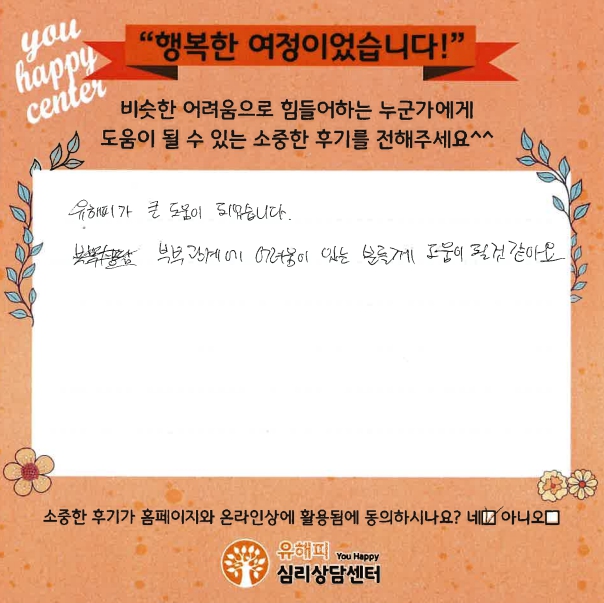 you
happy
center
“행복한 여정이었습니다!”
비슷한 어려움으로 힘들어하는 누군가에게
도움이 될 수 있는 소중한 후기를 전해주세요^^
유해피가 큰 도움이 되었습니다.
부부관계에 어려움이 있는 분들께 도움이 될것 같아요
소중한 후기가 홈페이지와 온라인상에 활용됨에 동의하시나요? 네☑ 아니오☐
유해피 You Happy
심리상담센터